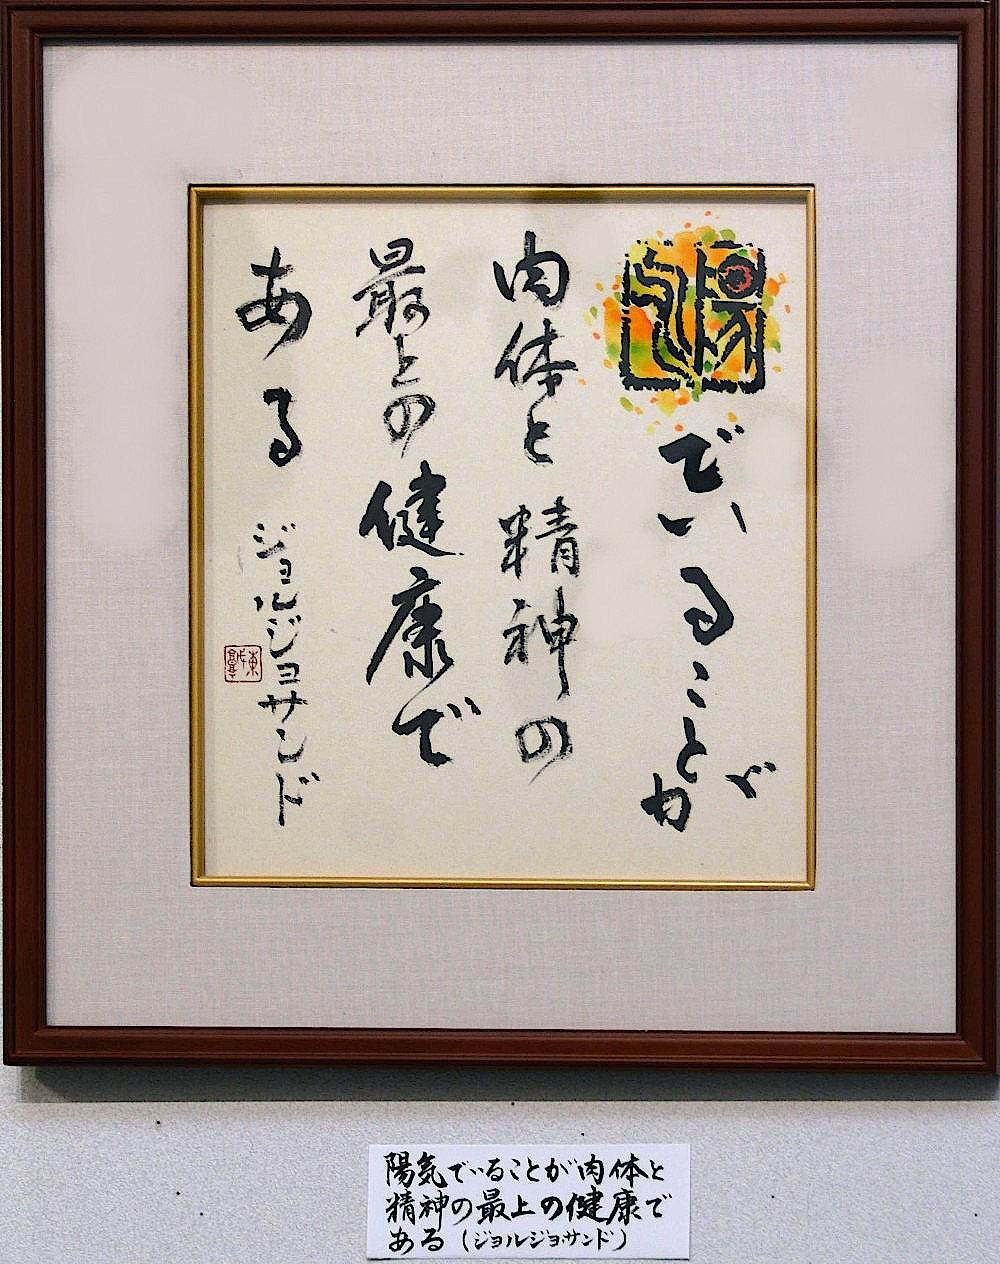 陽気
でいることが
肉体と精神の
最上の健康で
ある
ジョルジョサンド
陽気でいることが肉体と
精神の最上の健康で
ある(ジョルジョサンド)